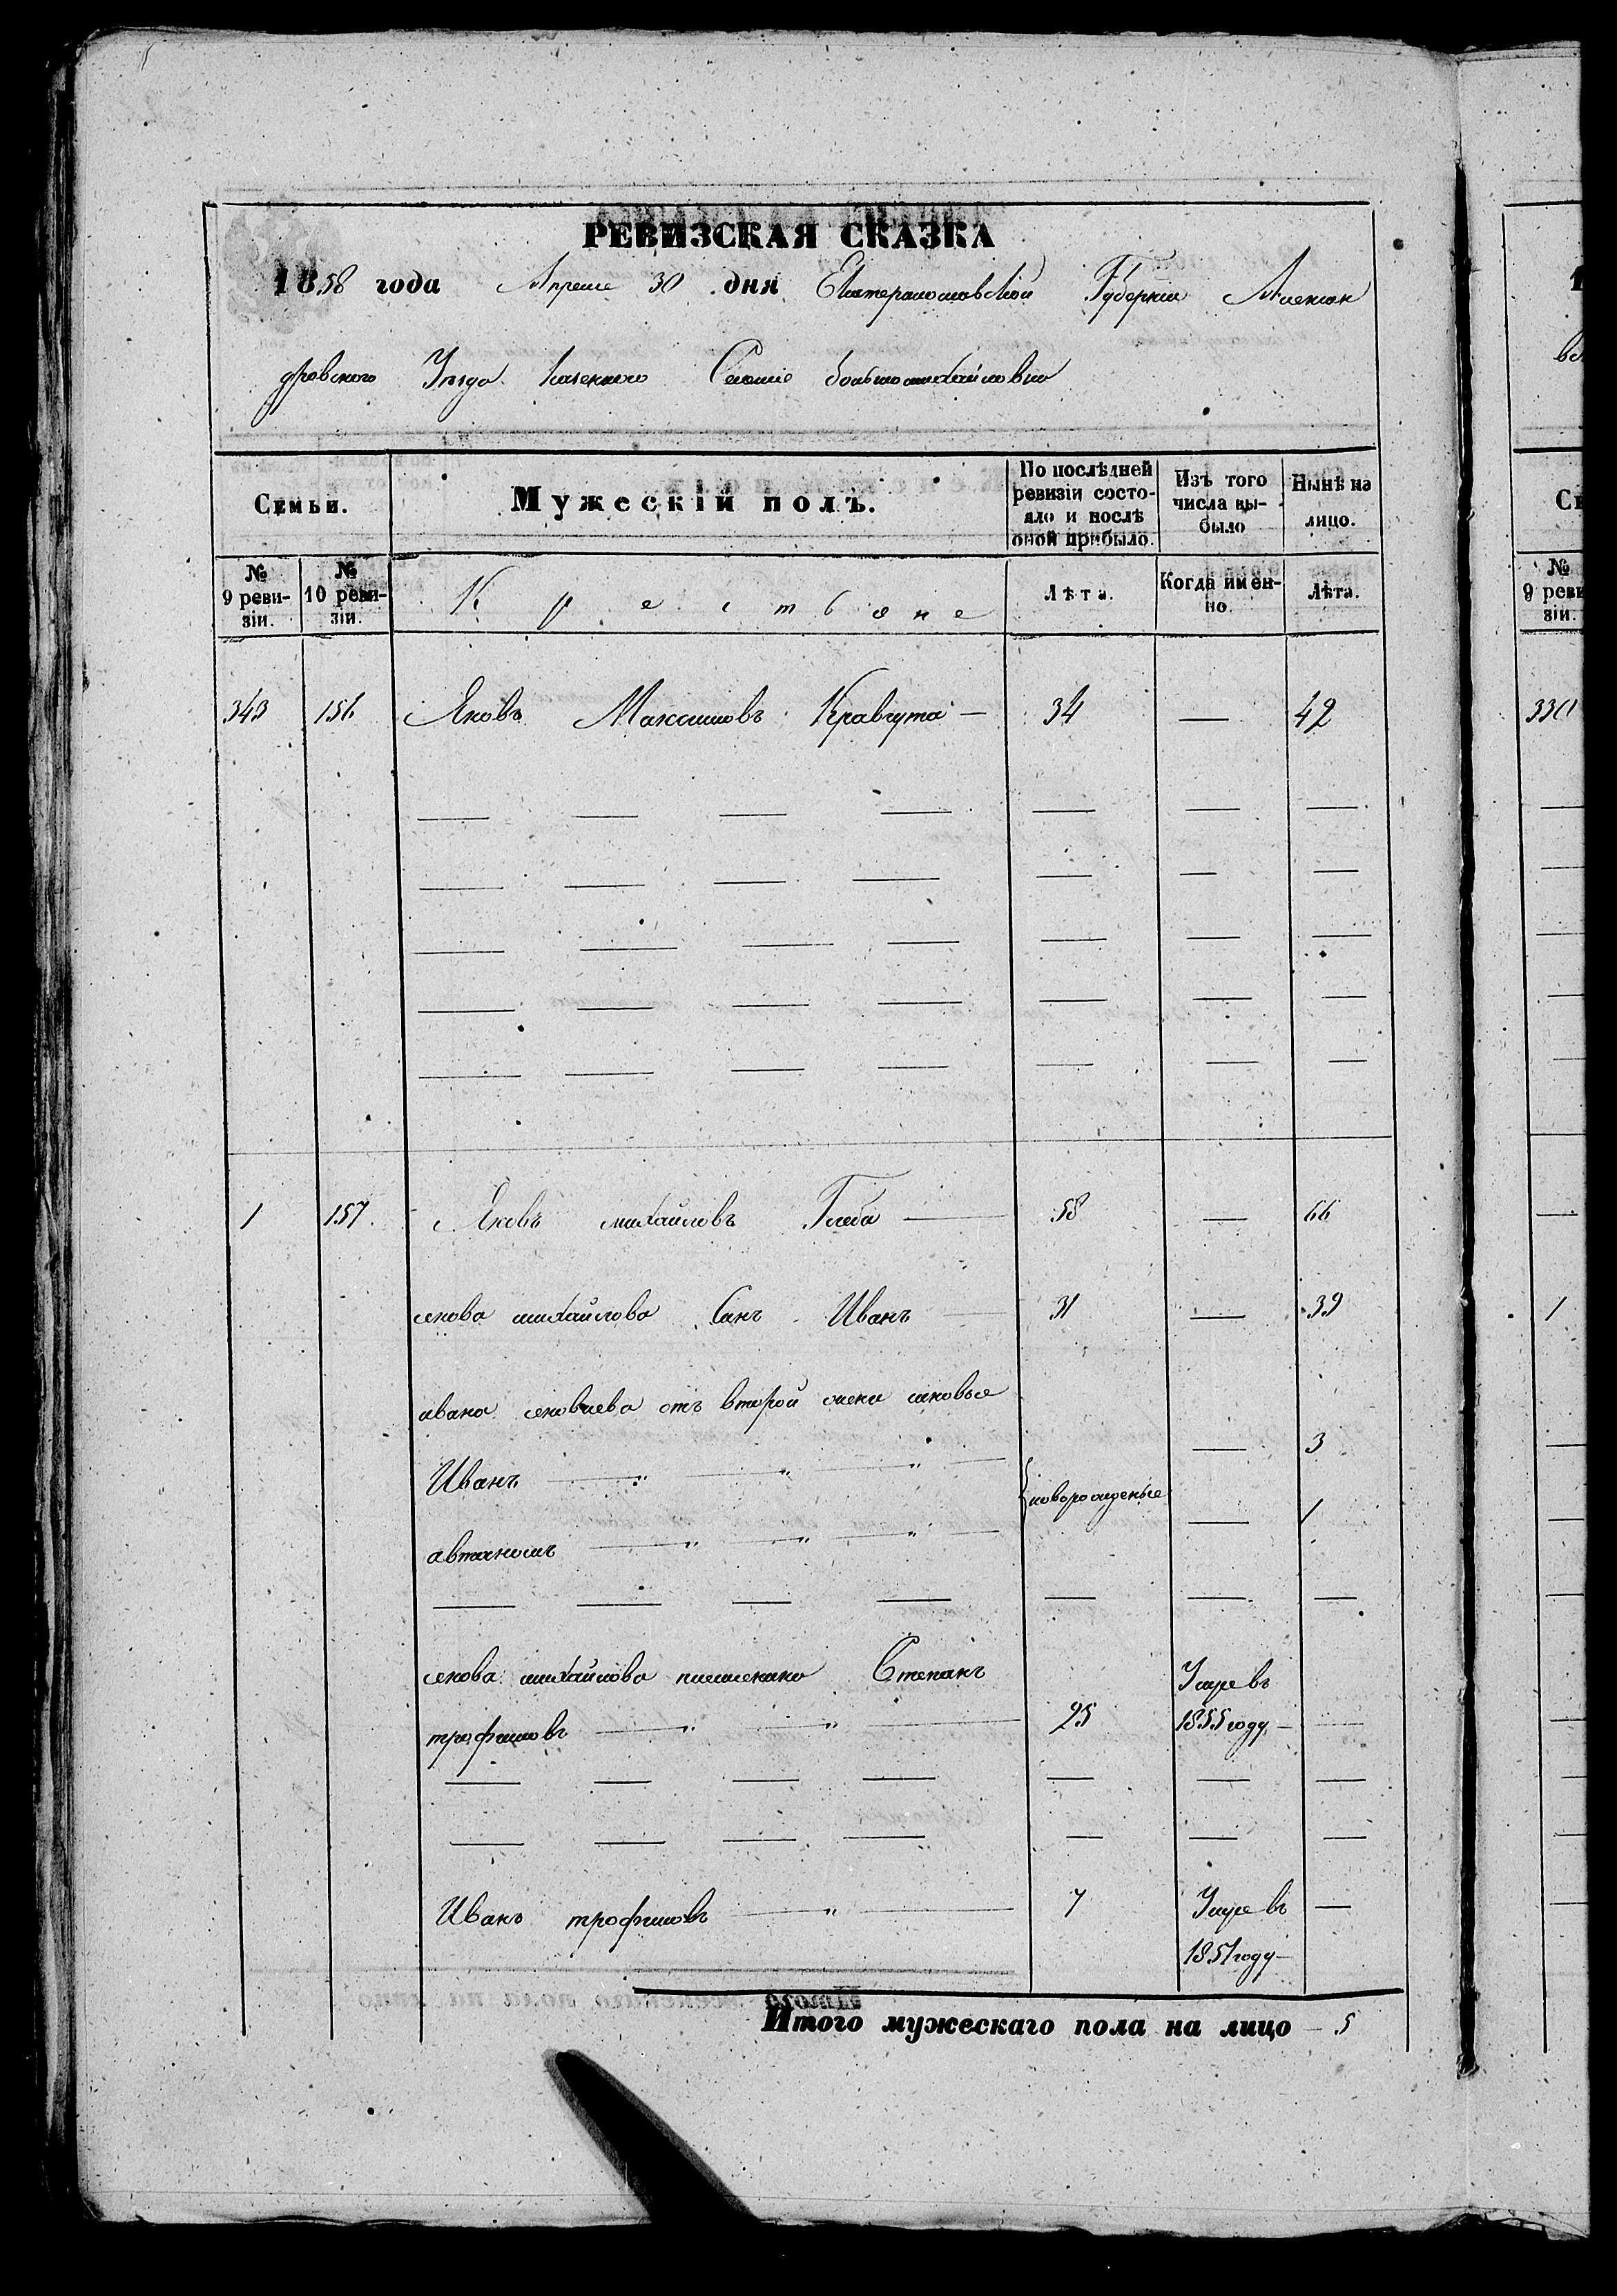 РЕВИЗСКАЯ СКАЗКА
1858 года Апреля 30 дня Екатеринославской Губернии Алексан
дровского Уезда казенного Селение большомихайловки
Семьи.
Мужескій полъ.
По послѣдней ревизіи состояло и послѣ оной прибыло.
Изъ того числа выбыло
Нынѣ на лицо.
№ 9 ревизіи.
№ 10 ревизіи.
Крестьяне
Лѣта.
Когда именно.
Лѣта.
343 156 Яковъ Максимовъ Кравчута — 34 — 42
1 157 Яковъ михайловъ Глеба — 58 — 66
якова михайлова Синъ Иванъ — 31 — 39
ивана яковлева отъ второй жени синовье
Иванъ — " — " — " — — 3
{новорожденые
автаномъ — " — " — " — — 1
якова михайлова племенико Степанъ
трофимовъ — " — " — 25 Умре въ 1855 году — —
Иванъ трофимовъ — " — 7 Умре въ 1851 году — —
Итого мужескаго пола на лицо — 5
1
вс
Се
№ 9 реви
зіи.
330
1